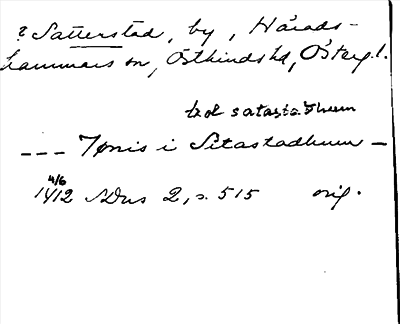 ? Sätterstad, by, Härads-
hammars sn, Östkinds hd, Östergl.
trol satastadhum
--- Tønis i Sitastadhum -
4/6
1412 SDns 2, s. 515 orig.